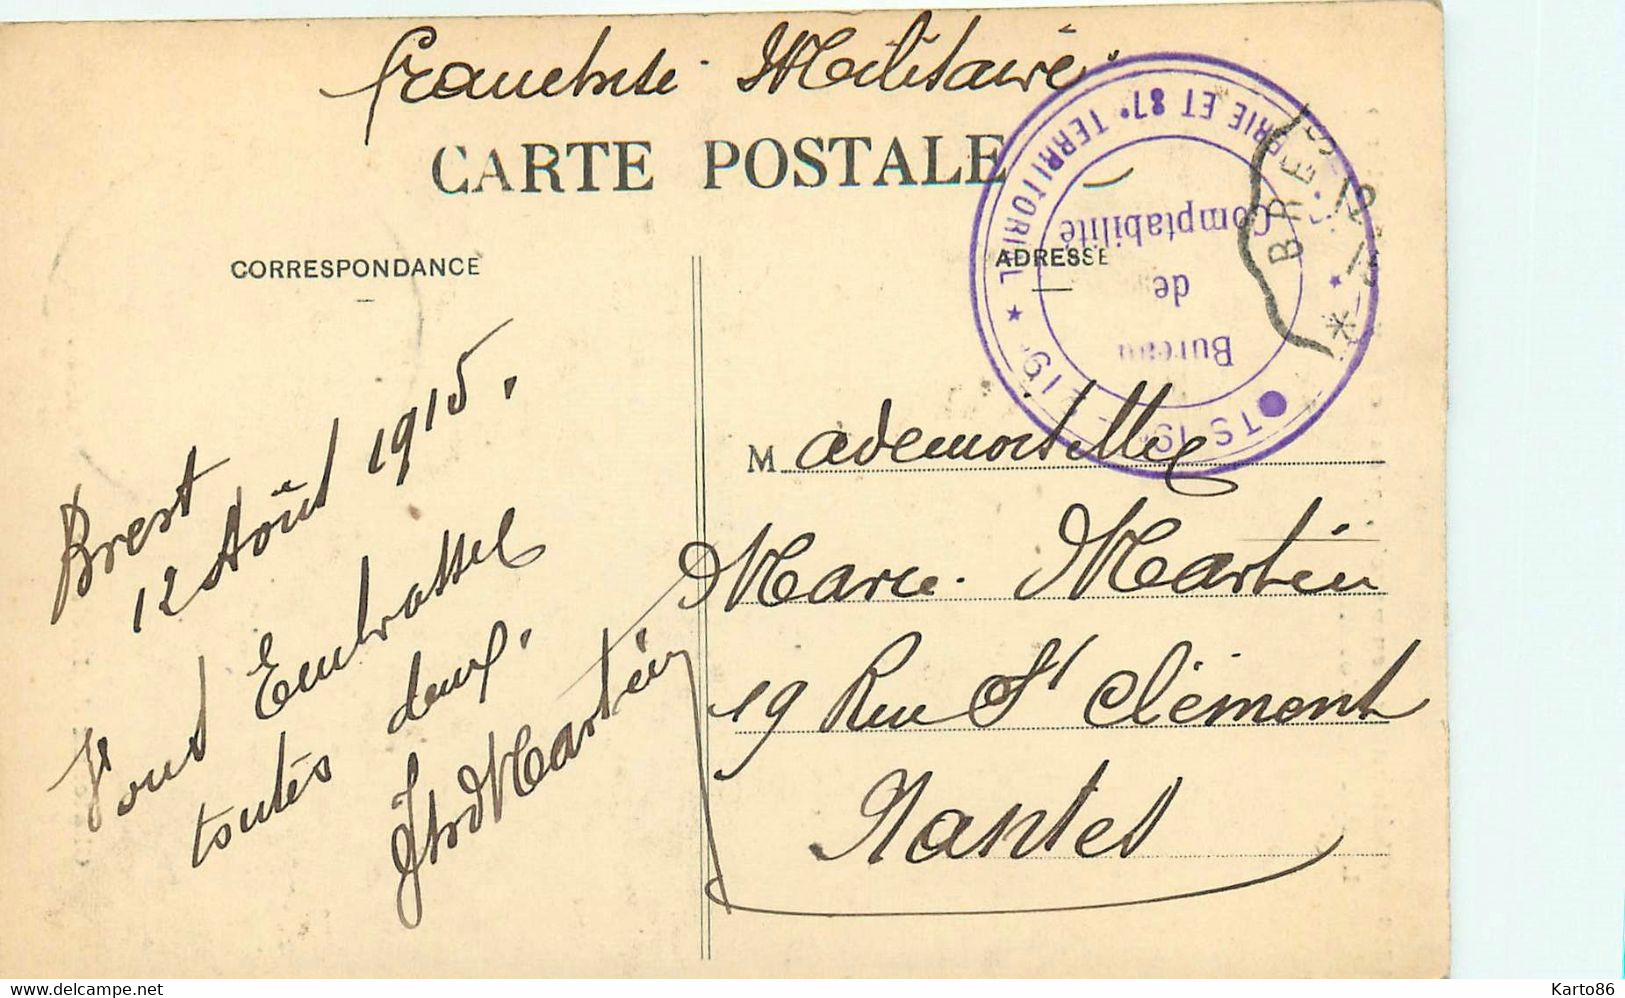 Franchise Militaire
CARTE POSTALE
CORRESPONDANCE
ADRESSE
Brest
12 Août 1915.
Vous Embrasse
toutes deux.
Martin
Mademoiselle
Marie Martin
19 Rue St Clément
Nantes
TS 19e 19e TERRITORIAL
ET 87e TERRITORIAL
Bureau
de
Comptabilité
BREST
www.delcampe.net
Karto86